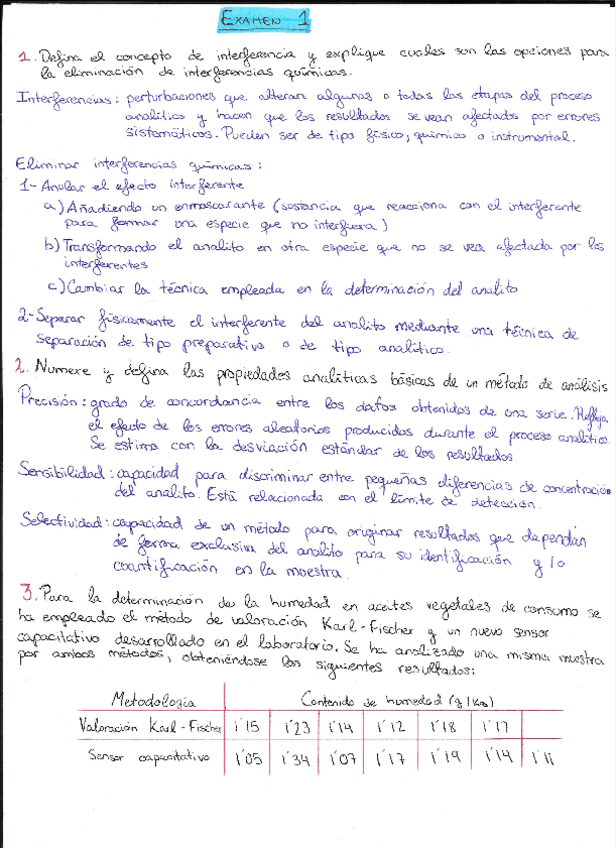 EXAMEN 1
1. Defina el concepto de interferencia y explique cuales son las opciones para
la eliminación de interferencias químicas.
Interferencias: perturbaciones que alteran algunas o todas las etapas del proceso
analítico y hacen que los resultados se vean afectados por errores
sistemáticos. Pueden ser de tipo físico, químico o instrumental.
Eliminar interferencias químicas:
1- Anular el efecto interferente
a) Añadiendo un enmascarante (sustancia que reacciona con el interferente
para formar una especie que no interfiera)
b) Transformando el analito en otra especie que no se vea afectada por los
interferentes
c) Cambiar la técnica empleada en la determinación del analito
2- Separar físicamente el interferente del analito mediante una técnica de
separación de tipo preparativo o de tipo analítico.
2. Numere y defina las propiedades analíticas básicas de un método de análisis
Precisión: grado de concordancia entre los datos obtenidos de una serie. Refleja
el efecto de los errores aleatorios producidos durante el proceso analítico.
Se estima con la desviación estándar de los resultados.
Sensibilidad: capacidad para discriminar entre pequeñas diferencias de concentración
del analito. Está relacionada con el límite de detección.
Selectividad: capacidad de un método para originar resultados que dependan
de forma exclusiva del analito para su identificación y/o
cuantificación en la muestra.
3. Para la determinación de la humedad en aceites vegetales de consumo se
ha empleado el método de valoración Karl-Fischer y un nuevo sensor
capacitativo desarrollado en el laboratorio. Se ha analizado una misma muestra
por ambos métodos, obteniéndose los siguientes resultados:
Metodología Contenido de humedad (g/Kg)
Valoración Karl-Fischer 1'15 1'23 1'14 1'12 1'18 1'17
Sensor capacitativo 1'05 1'34 1'07 1'17 1'19 1'14 1'11